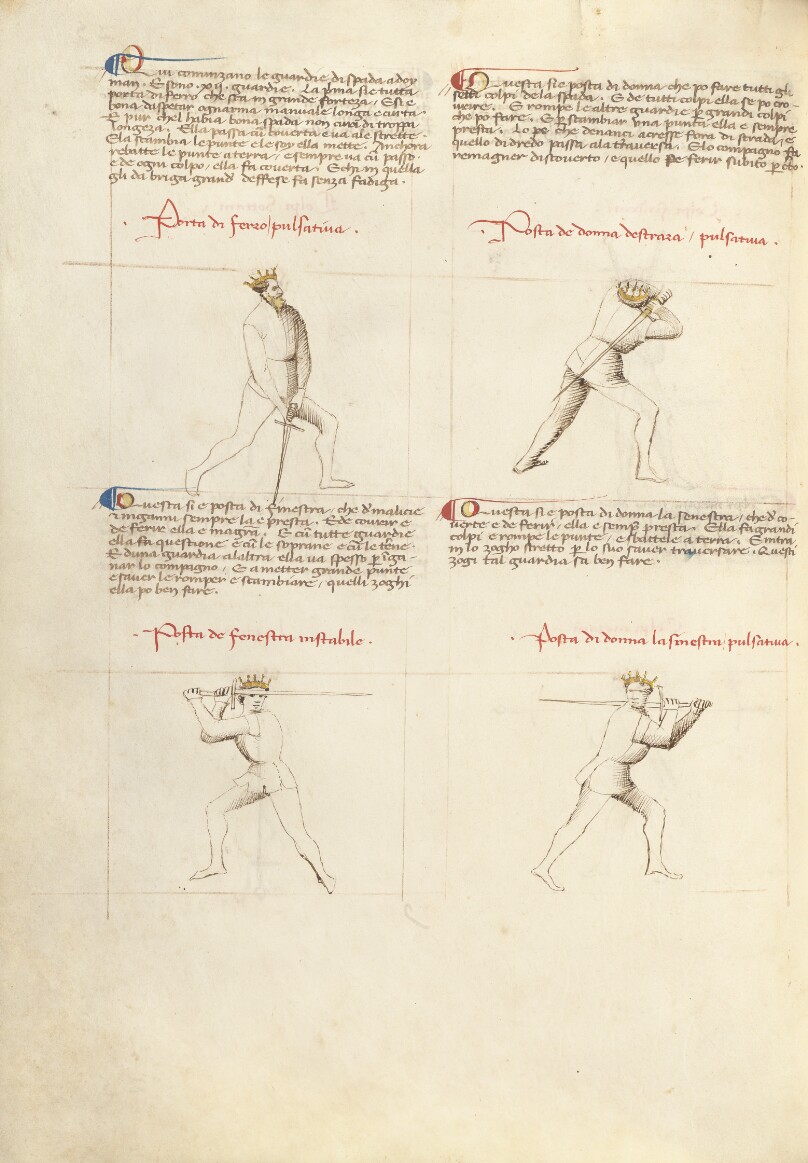 Qui cominzano le guardie di spada a doy
man. E sono .xij. guardie. La p̃ma sie tutta
porta di ferro che sta in grande forteza / E si e
bona di aspetar ognarma manuale longa e curta.
E pur chel habia bona spada non cura di troppa
longeza. Ella passa cũ coverta e va ale strette.
Ela scambia le punte e le soy ella mette. Anchora
rebatte le punte a terra / e sempre va cũ passo.
e de ogni colpo / ella fa coverta. E chi in quella
gli da briga grand deffese fa senza fadiga.
Porta di ferro / pulsativa.
Questa sie posta di donna che po fare tutti gli
setti colpi de la spada. E de tutti colpi ella se po cro-
vrire. E rompe le altre guardie p̱ grandi colpi
che po fare. E p̱ scambiar una punta ella e sempre
presta. Lo pe che denanci acresse fora di strada / e
quello di dredo passa ala traversa. E lo compagno fa
remagner discoverto / e quello po ferir subito p̱ c̃to.
Posta de donna destraza / pulsativa.
Questa si e posta di finestra / che d' malicie
e inganni sempre la e presta. E de covrir e
de ferire ella e magẽ̃a. E cũ tutte guardie
ella fa questione e cũ le soprane e cũ le terẽne.
E d'una guardia a laltra ella va spesso p̱ ĩga-
nar lo compagno / E a metter grande punte
e saver le romper e scambiare / quelli zoghi
ella po ben fare.
Posta de fenestra instabile.
Questa si e posta di donna la senestra / che d' co-
verte e de ferir / ella e semp̱ presta. Ella fa grandi
colpi e rompe le punte / e sbattele a terra. E intra
in lo zogho stretto p̱ lo suo saver traversare. Questi
zogi tal guardia sa ben fare.
Posta di donna la sinestra / pulsativa.